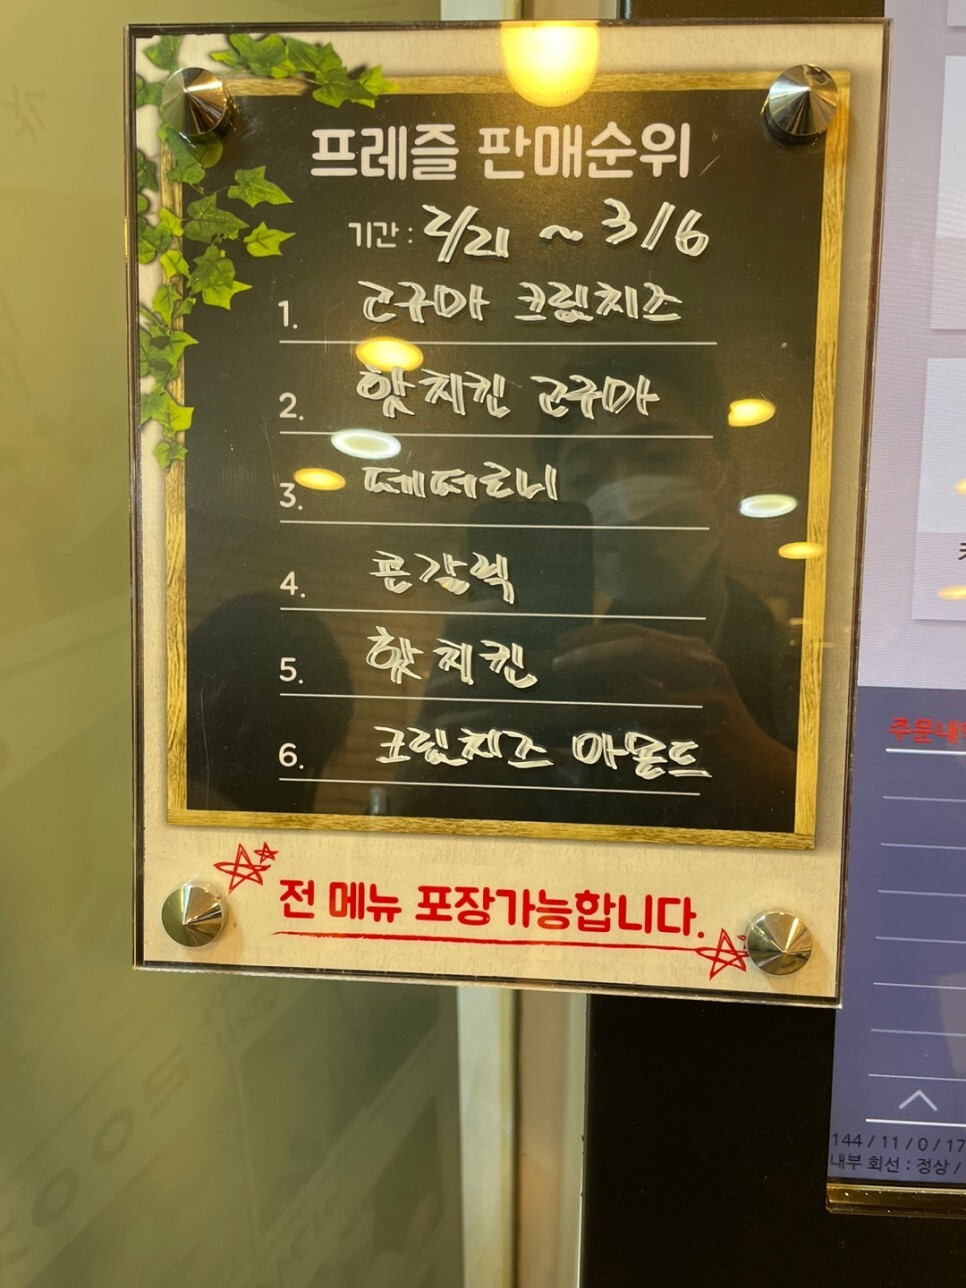 프레즐 판매순위
기간 : 2/21 ~ 3/6
1. 고구마 크림치즈
2. 핫치킨 고구마
3. 페퍼로니
4. 콘감력
5. 핫치킨
6. 크림치즈 아몬드
전 메뉴 포장가능합니다.
주문내역
144 / 11 / 0 / 17
내부 회선 : 정상 /